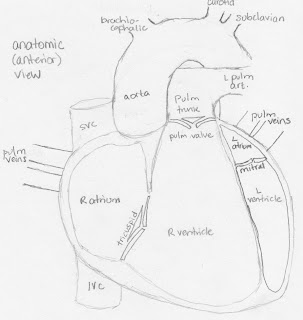 carotid
brachio-
cephalic
subclavian
anatomic
(anterior)
view
aorta
L pulm
art.
Pulm
trunk
pulm
veins
SVC
pulm valve
L
atrium
pulm
veins
mitral
R atrium
L
ventricle
tricuspid
R ventricle
IVC